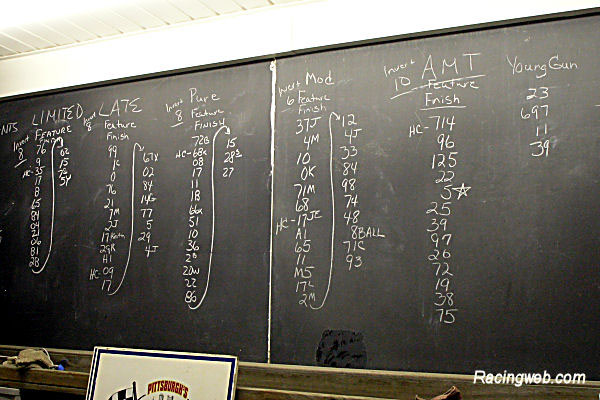 NTS
LIMITED
Invert
8
FEATURE
76
9
HC-35
17
B
65
84
04
06
81
2B
02
15
76
54
Invert
8
LATE
Feature
Finish
99
1C
0
76
21
7M
2J
29R
H1
HC-09
17
67X
02
84
14G
77
5
29
4J
Invert
8
Pure
Feature
FINISH
72B
HC-68X
0B
17
11
1B
66X
51
10
36
20W
22
86
15
28S
27
Invert
6
Mod
Feature
Finish
37J
4M
10
0K
71M
68
HC-17JC
A1
65
11
M5
17C
2M
12
4J
33
84
98
74
48
8BALL
71C
93
Invert
10
AMT
Feature
Finish
HC-714
96
125
22
5☆
25
39
97
26
72
19
38
75
Young Gun
23
697
11
39
PITTSBURGH'S
Racingweb.com